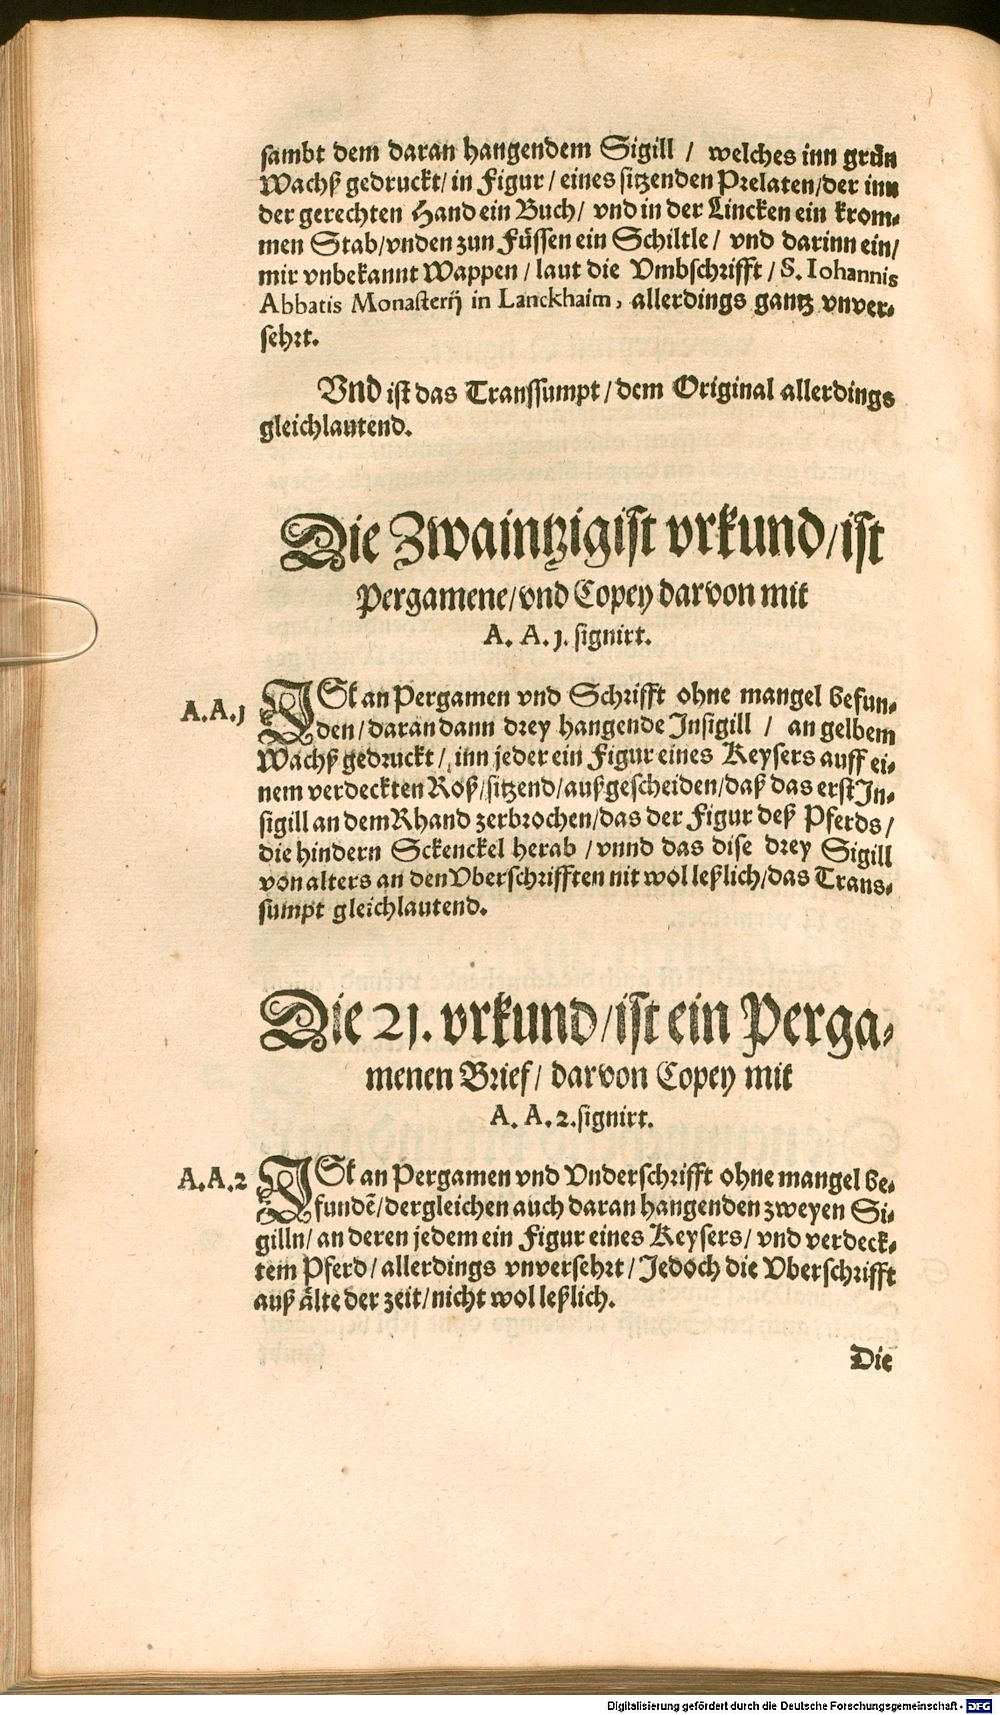 sambt dem daran hangendem Sigill / welches inn grün
Wachß gedruckt / in Figur / eines sitzenden Prelaten / der inn
der gerechten Hand ein Buch / vnd in der Lincken ein krom-
men Stab / vnden zun Füssen ein Schiltle / vnd darinn ein /
mir vnbekannt Wappen / laut die Vmbschrifft / S. Iohannis
Abbatis Monasterij in Lanckhaim, allerdings gantz vnver-
sehrt.
Vnd ist das Transsumpt / dem Original allerdings
gleichlautend.
Die Zwaintzigist vrkund / ist
Pergamene / vnd Copey darvon mit
A. A. 1. signirt.
A.A.1
ISt an Pergamen vnd Schrifft ohne mangel befun-
den / daran dann drey hangende Insigill / an gelbem
Wachß gedruckt / inn jeder ein Figur eines Keysers auff ei-
nem verdeckten Roß / sitzend / außgescheiden / daß das erst In-
sigill an dem Rhand zerbrochen / das der Figur deß Pferds /
die hindern Sckenckel herab / vnnd das dise drey Sigill
von alters an den Vberschrifften nit wol leßlich / das Trans-
sumpt gleichlautend.
Die 21. vrkund / ist ein Perga-
menen Brief / darvon Copey mit
A. A. 2. signirt.
A.A.2
ISt an Pergamen vnd Vnderschrifft ohne mangel be-
fundē / dergleichen auch daran hangenden zweyen Si-
gilln / an deren jedem ein Figur eines Keysers / vnd verdeck-
tem Pferd / allerdings vnversehrt / Jedoch die Vberschrifft
auß älte der zeit / nicht wol leßlich.
Die
Digitalisierung gefördert durch die Deutsche Forschungsgemeinschaft - DFG